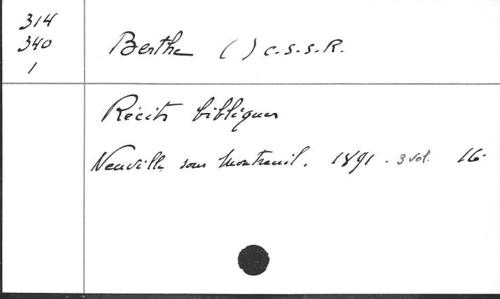 314
340
1
Berthe ( ) C.S.S.R.
Récits bibliques
Neuville sous Montreuil. 1891. 3 vol. 16.